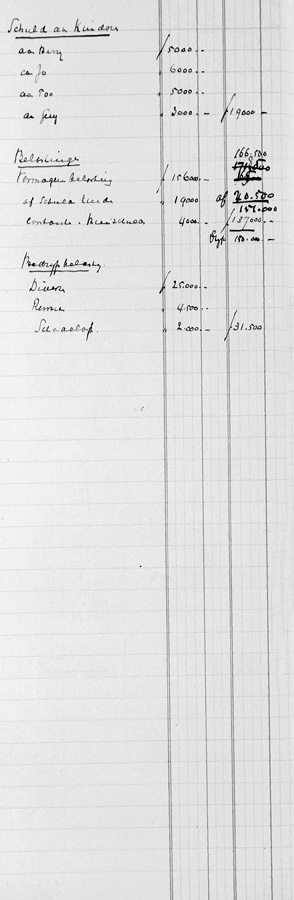 Schuld aan Kinderen
aan Barry 5000.-
aan Jo 6000.-
aan Too 5000.-
aan Guy 3000.- 19000.-
Belastingen 166.500
Vermogensbelasting 156000.-
af Schuld Kinderen 19000 af 20.500
157.000
4000.- 137000.-
Blijft 150.000.-
Bedrijfsbelasting
Diversen 25.000.-
4.500.-
2.000.- 31.500